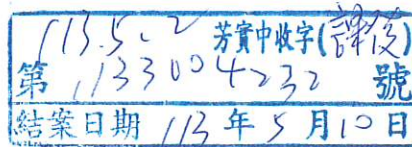 113.5.2 芳實中收字(課後)
第 1133004232 號
結案日期 113 年 5 月 10 日